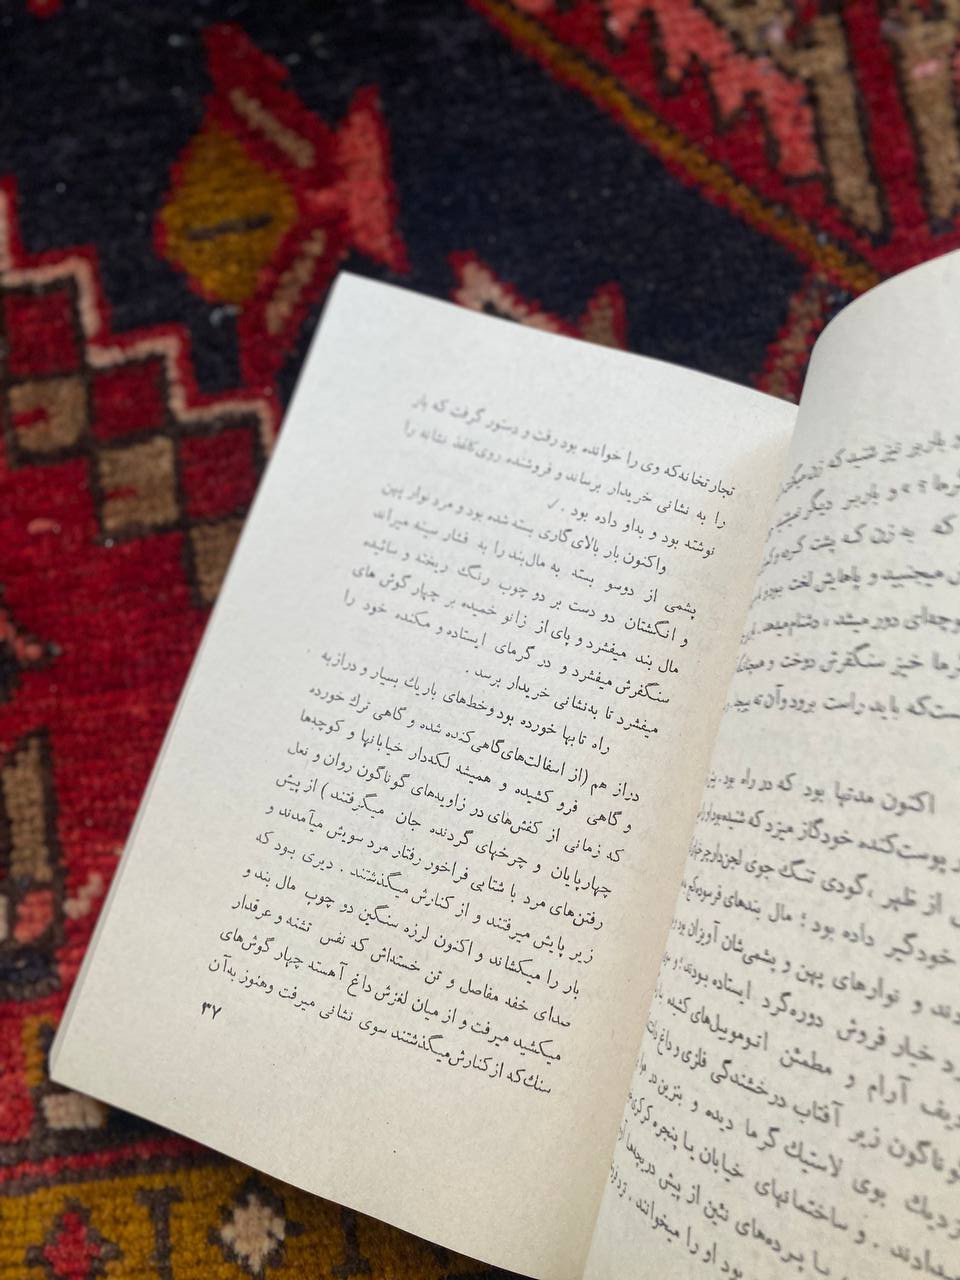 تجارتخانه که وی را خوانده بود رفت و دستور گرفت که بار
را به نشانی خریدار برساند و فروشنده روی کاغذ نشانه را
نوشته بود و بداو داده بود .
واکنون بار بالای گاری بسته شده بود و مرد نوار پهن
پشمی از دوسو بسته به مال‌بند را به فشار سینه میراند
و انگشتان دو دست بر دو چوب رنگ ریخته و سائیده
مال بند میفشرد و پای از زانو خمیده بر چهار گوش های
سنگفرش میفشرد و در گرمای ایستاده و مکنده خود را
میفشرد تا بدنشانی خریدار برسد .
راه تابها خورده بود وخط‌های باریك بسیار و درازبه
دراز هم (از اسفالت‌های گاهی کنده شده و گاهی ترك خورده
و گاهی فرو کشیده و همیشد لکددار خیابانها و کوچدها
که زمانی از کفش‌های در زاوید‌های گوناگون روان و نعل
چهارپایان و چرخهای گردنده جان میگرفتند ) از پیش
رفتن‌های مرد با شتابی فراخور رفتار مرد سویش میآمدند و
زیر پایش میرفتند و از کنارش میگذشتند . دیری بود که
بار را میکشاند و اکنون لرزه سنگین دو چوب مال بند و
صدای خفه مفاصل و تن خسته‌اش که نفس تشنه و عرقدار
میکشید میرفت و از میان لغزش داغ آهسته چهار گوش‌های
سنك که از کنارش میگذشتند سوی نشانی میرفت وهنوز بدآن
۳۷
و باربر تیز شنید که زن میگفت
گرما ؟ » و باربر دیگر نمیشنید
که به زن که پشت کرده و
میجنبید و پاهایش لخت بود و
کوچه‌ای دور میشد ، دشنام میدهد .
گرما خیز سنگفرش دوخت و
است‌که باید راست برود وآن نه پیچ
اکنون مدتها بود که در راه بود .
پوست‌کنده خودگاز میزد که شنیده بود
از ظهر ، گودی تنگ جوی لجن‌دار
خودگیر داده بود ؛ مال بندهای فرسوده
و نوارهای پهن و پشمی‌شان آویزان بود
خیار فروش دوره‌گرد ایستاده بودند ؛ و
ردیف آرام و مطمئن اتوموبیل‌های کشیده
گوناگون زیر آفتاب درخشندگی فلزی و داغ
نزدیك بوی لاستیك گرما دیده و بنزین در
میدادند . و ساختمانهای خیابان با پنجره
با پرده‌های نئین از پیش دریچدها
بود او را میخواندند .